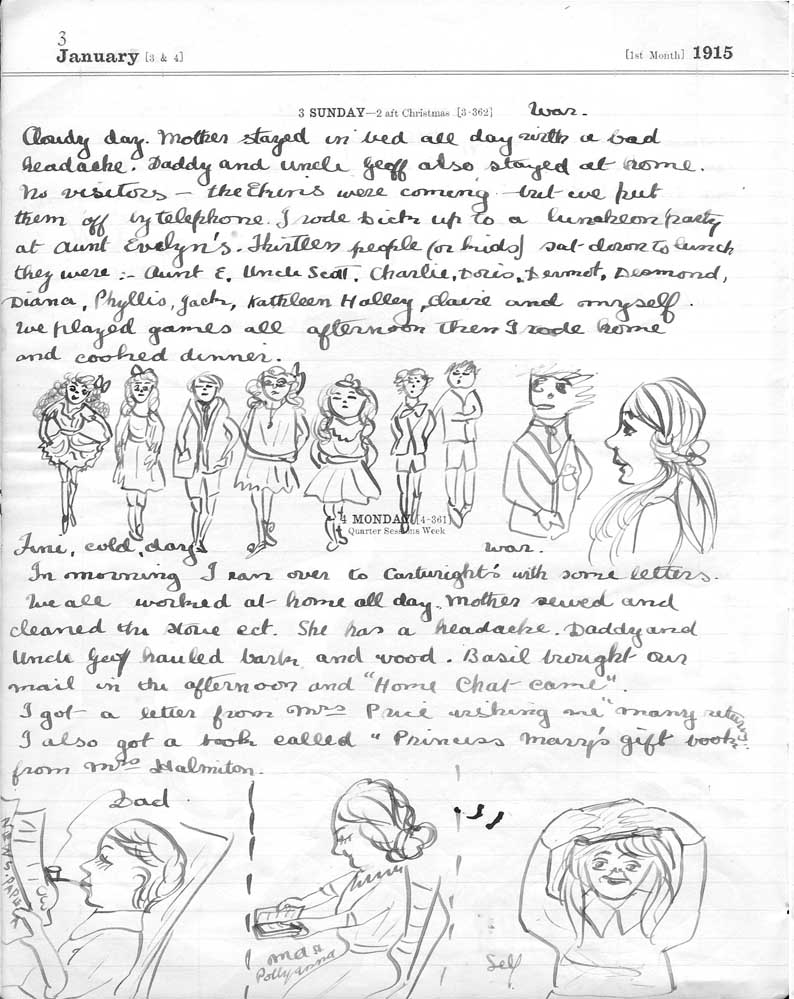 3
January [3 & 4] [1st Month] 1915
3 SUNDAY—2 aft Christmas [3-362] War.
Cloudy day. Mother stayed in bed all day with a bad
headache. Daddy and Uncle Geoff also stayed at home.
No visitors – the were coming but we put
them off by telephone. I rode Dick up to a luncheon party
at Aunt Evelyn's. Thirteen people (or kids) sat down to lunch
they were :- Aunt E, Uncle Scott, Charlie, Doris, Dermot, Desmond,
Diana, Phyllis, Jack, Kathleen Halley, Claire and myself.
We played games all afternoon then I rode home
and cooked dinner.
4 MONDAY [4-361]
Quarter Sessions Week
Fine, cold, day War.
In morning I ran over to Cartwright's with some letters.
We all worked at home all day. Mother sewed and
cleaned the stove ect. She has a headache. Daddy and
Uncle Geoff hauled bark and wood. Basil brought our
mail in the afternoon and "Home Chat came".
I got a letter from Mrs Price wishing me "many returns"
I also got a book called "Princess Marry's gift book"
from Mrs Halmiton.
Dad
NEWS. PAPER
Ma &
Pollyanna
Self